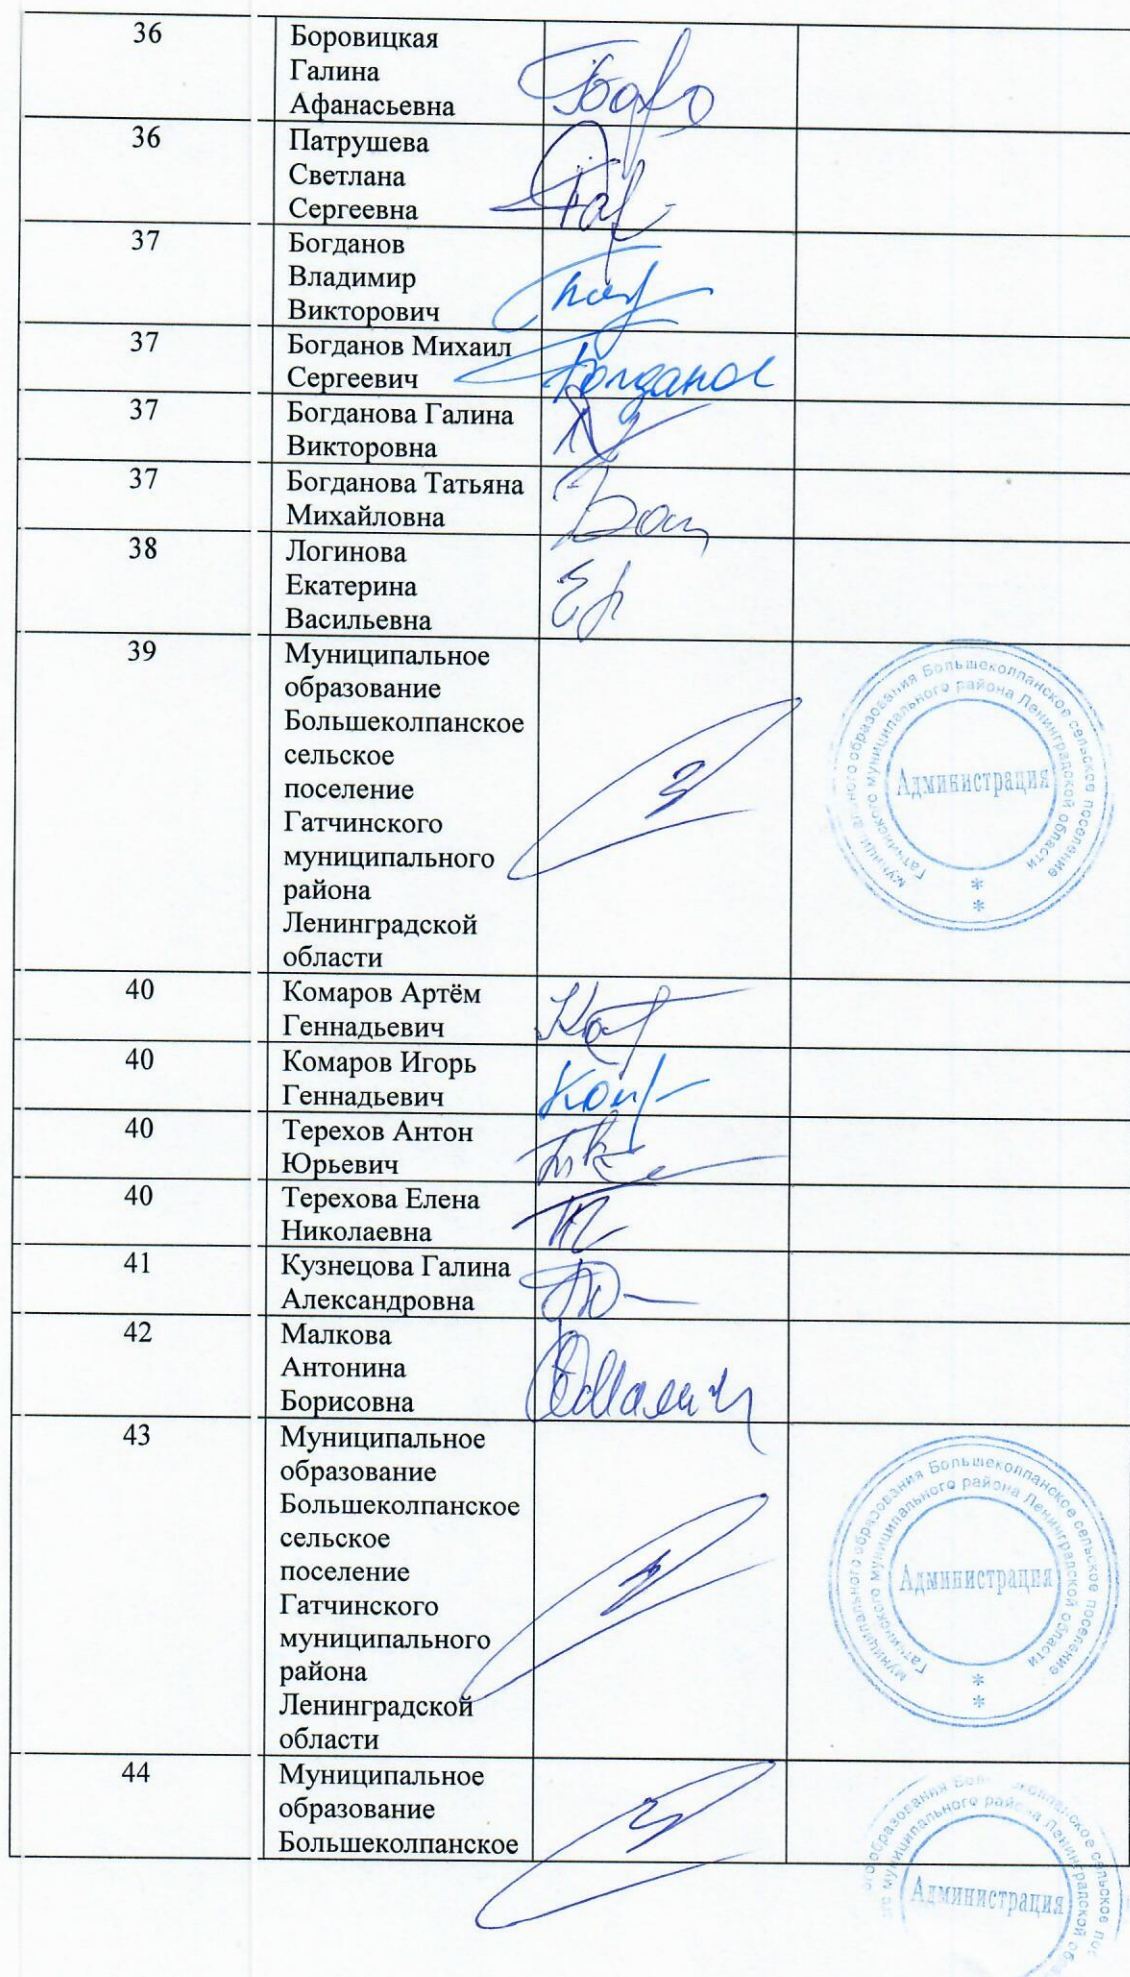 36
Боровицкая
Галина
Афанасьевна
36
Патрушева
Светлана
Сергеевна
37
Богданов
Владимир
Викторович
37
Богданов Михаил
Сергеевич
Богданов
37
Богданова Галина
Викторовна
37
Богданова Татьяна
Михайловна
38
Логинова
Екатерина
Васильевна
39
Муниципальное
образование
Большеколпанское
сельское
поселение
Гатчинского
муниципального
района
Ленинградской
области
образования Большеколпанское сельское поселение
Гатчинского муниципального района Ленинградской области
Администрация
* *
40
Комаров Артём
Геннадьевич
40
Комаров Игорь
Геннадьевич
40
Терехов Антон
Юрьевич
40
Терехова Елена
Николаевна
41
Кузнецова Галина
Александровна
42
Малкова
Антонина
Борисовна
43
Муниципальное
образование
Большеколпанское
сельское
поселение
Гатчинского
муниципального
района
Ленинградской
области
муниципального образования Большеколпанское сельское поселение
Гатчинского муниципального района Ленинградской области
Администрация
* *
44
Муниципальное
образование
Большеколпанское
сельское
муниципального района Ленинградской
Администрация